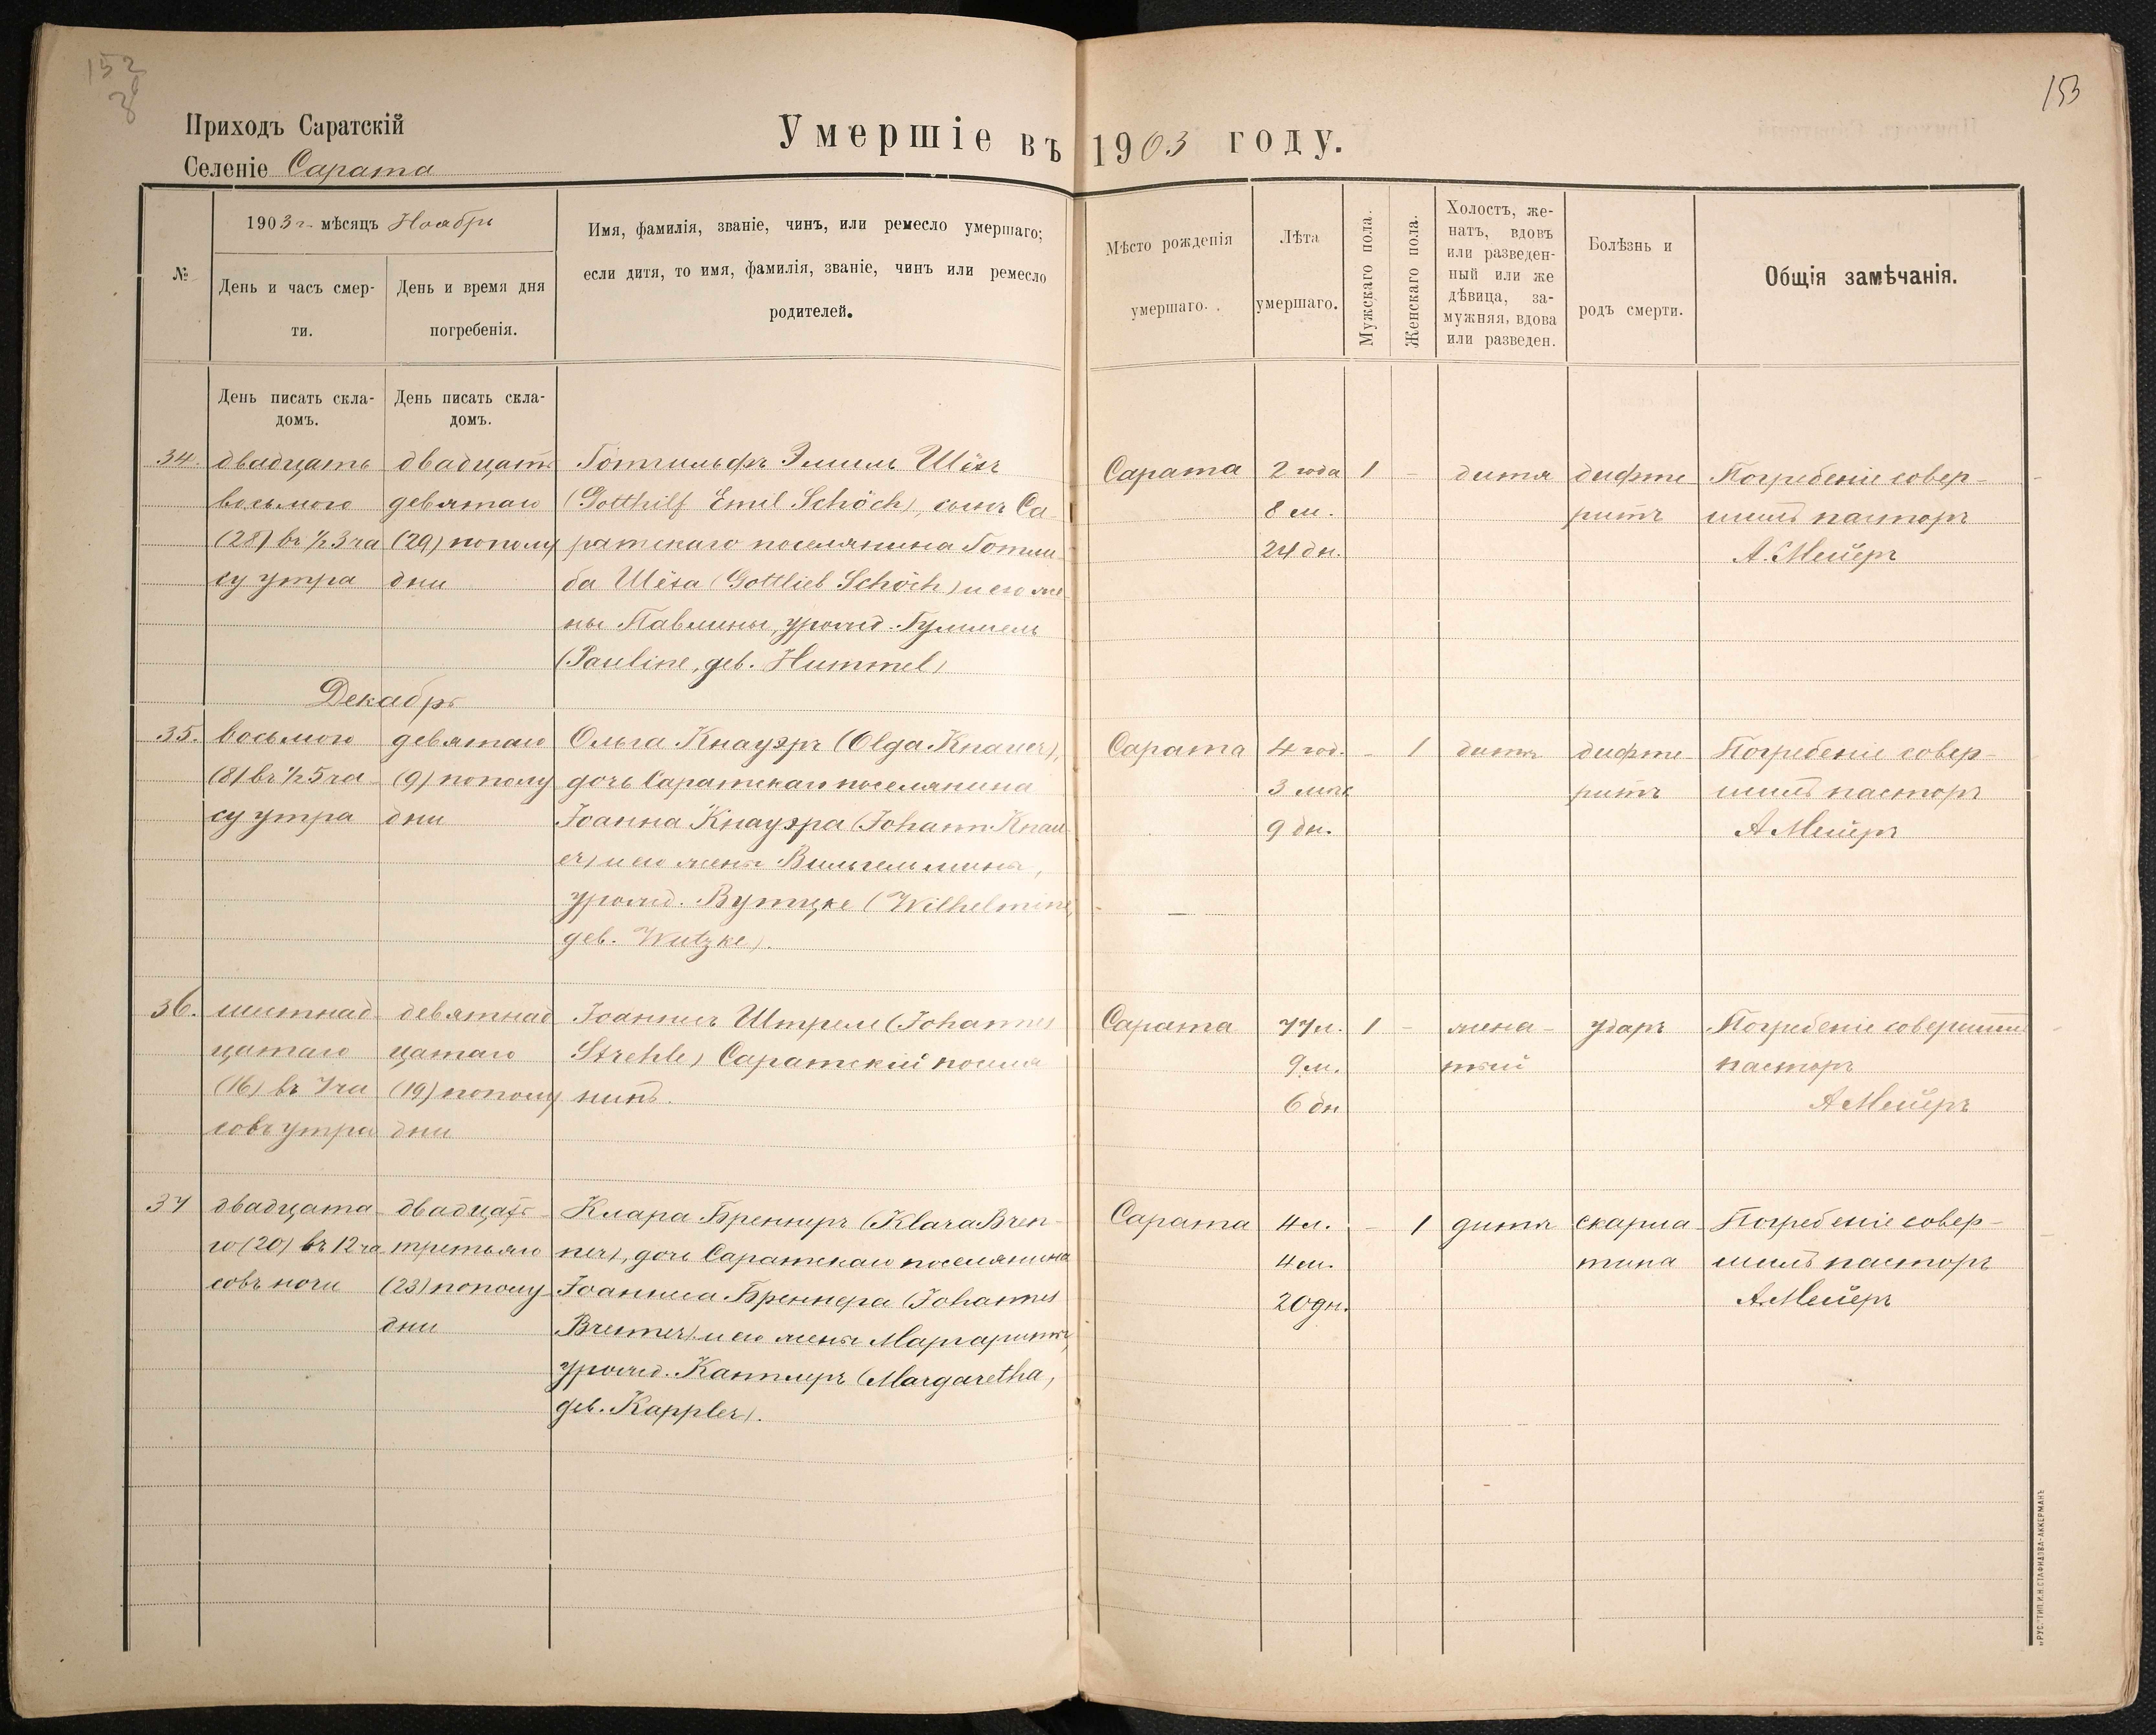 152
153
Приходъ Саратскій
Селеніе Сарата
Умершіе въ 1903 году.
№
1903 г. мѣсяцъ Ноябрь
День и часъ смер-
ти.
День и время дня
погребенія.
Имя, фамилія, званіе, чинъ, или ремесло умершаго;
если дитя, то имя, фамилія, званіе, чинъ или ремесло
родителей.
Мѣсто рожденія
умершаго.
Лѣта
умершаго.
Мужскаго пола.
Женскаго пола.
Холостъ, же-
натъ, вдовъ
или разведен-
ный или же
дѣвица, за-
мужняя, вдова
или разведен.
Болѣзнь и
родъ смерти.
Общія замѣчанія.
День писать скла-
домъ.
День писать скла-
домъ.
34.
двадцать
восьмого
(28) въ ½ 3 ча
су утра
двадцать
девятаго
(29) пополу
дни
Готгильфъ Эмиль Шёхъ
(Gotthilf Emil Schöch), сынъ Са-
ратскаго поселянина Готли-
ба Шёха (Gottlieb Schöch) и его же-
ны Павлины, урожд. Гуммель
(Pauline, geb. Hummel)
Сарата
2 года
8 м.
24 дн.
1
–
дитя
дифте
ритъ
Погребеніе совер-
шилъ пасторъ
А. Мейеръ
Декабрь
35.
восьмого
(8) въ ½ 5 ча-
су утра
девятаго
(9) пополу
дни
Ольга Кнауэръ (Olga Knauer),
дочь Саратскаго поселянина
Іоанна Кнауэра (Johann Knau-
er) и его жены Вильгельмины,
урожд. Вутцке (Wilhelmine,
geb. Wutzke).
Сарата
4 год.
3 мѣс
9 дн.
–
1
дитя
дифте-
ритъ
Погребеніе совер-
шилъ пасторъ
А Мейеръ
36.
шестнад-
цатаго
(16) въ 7 ча
совъ утра
девятнад
цатаго
(19) пополу
дни
Іоаннесъ Штреле (Johannes
Strehle) Саратскій поселя
нинъ.
Сарата
77 л.
9 м.
6 дн
1
–
жена-
тый
ударъ
Погребеніе совершилъ
пасторъ
А Мейеръ
37
двадцата-
го (20) въ 12 ча
совъ ночи
двадцать-
третьяго
(23) пополу
дни
Клара Бреннеръ (Klara Bren-
ner), дочь Саратскаго поселянина
Іоаннеса Бреннера (Johannes
Brenner) и его жены Маргариты,
урожд. Капплеръ (Margaretha,
geb. Kappler).
Сарата
4 л.
4 м.
20 дн.
–
1
дитя
скарла-
тина
Погребеніе совер-
шилъ пасторъ
А. Мейеръ
„РУС.“ ТИП. И.Н. СТАФИДОВА-АККЕРМАНЪ